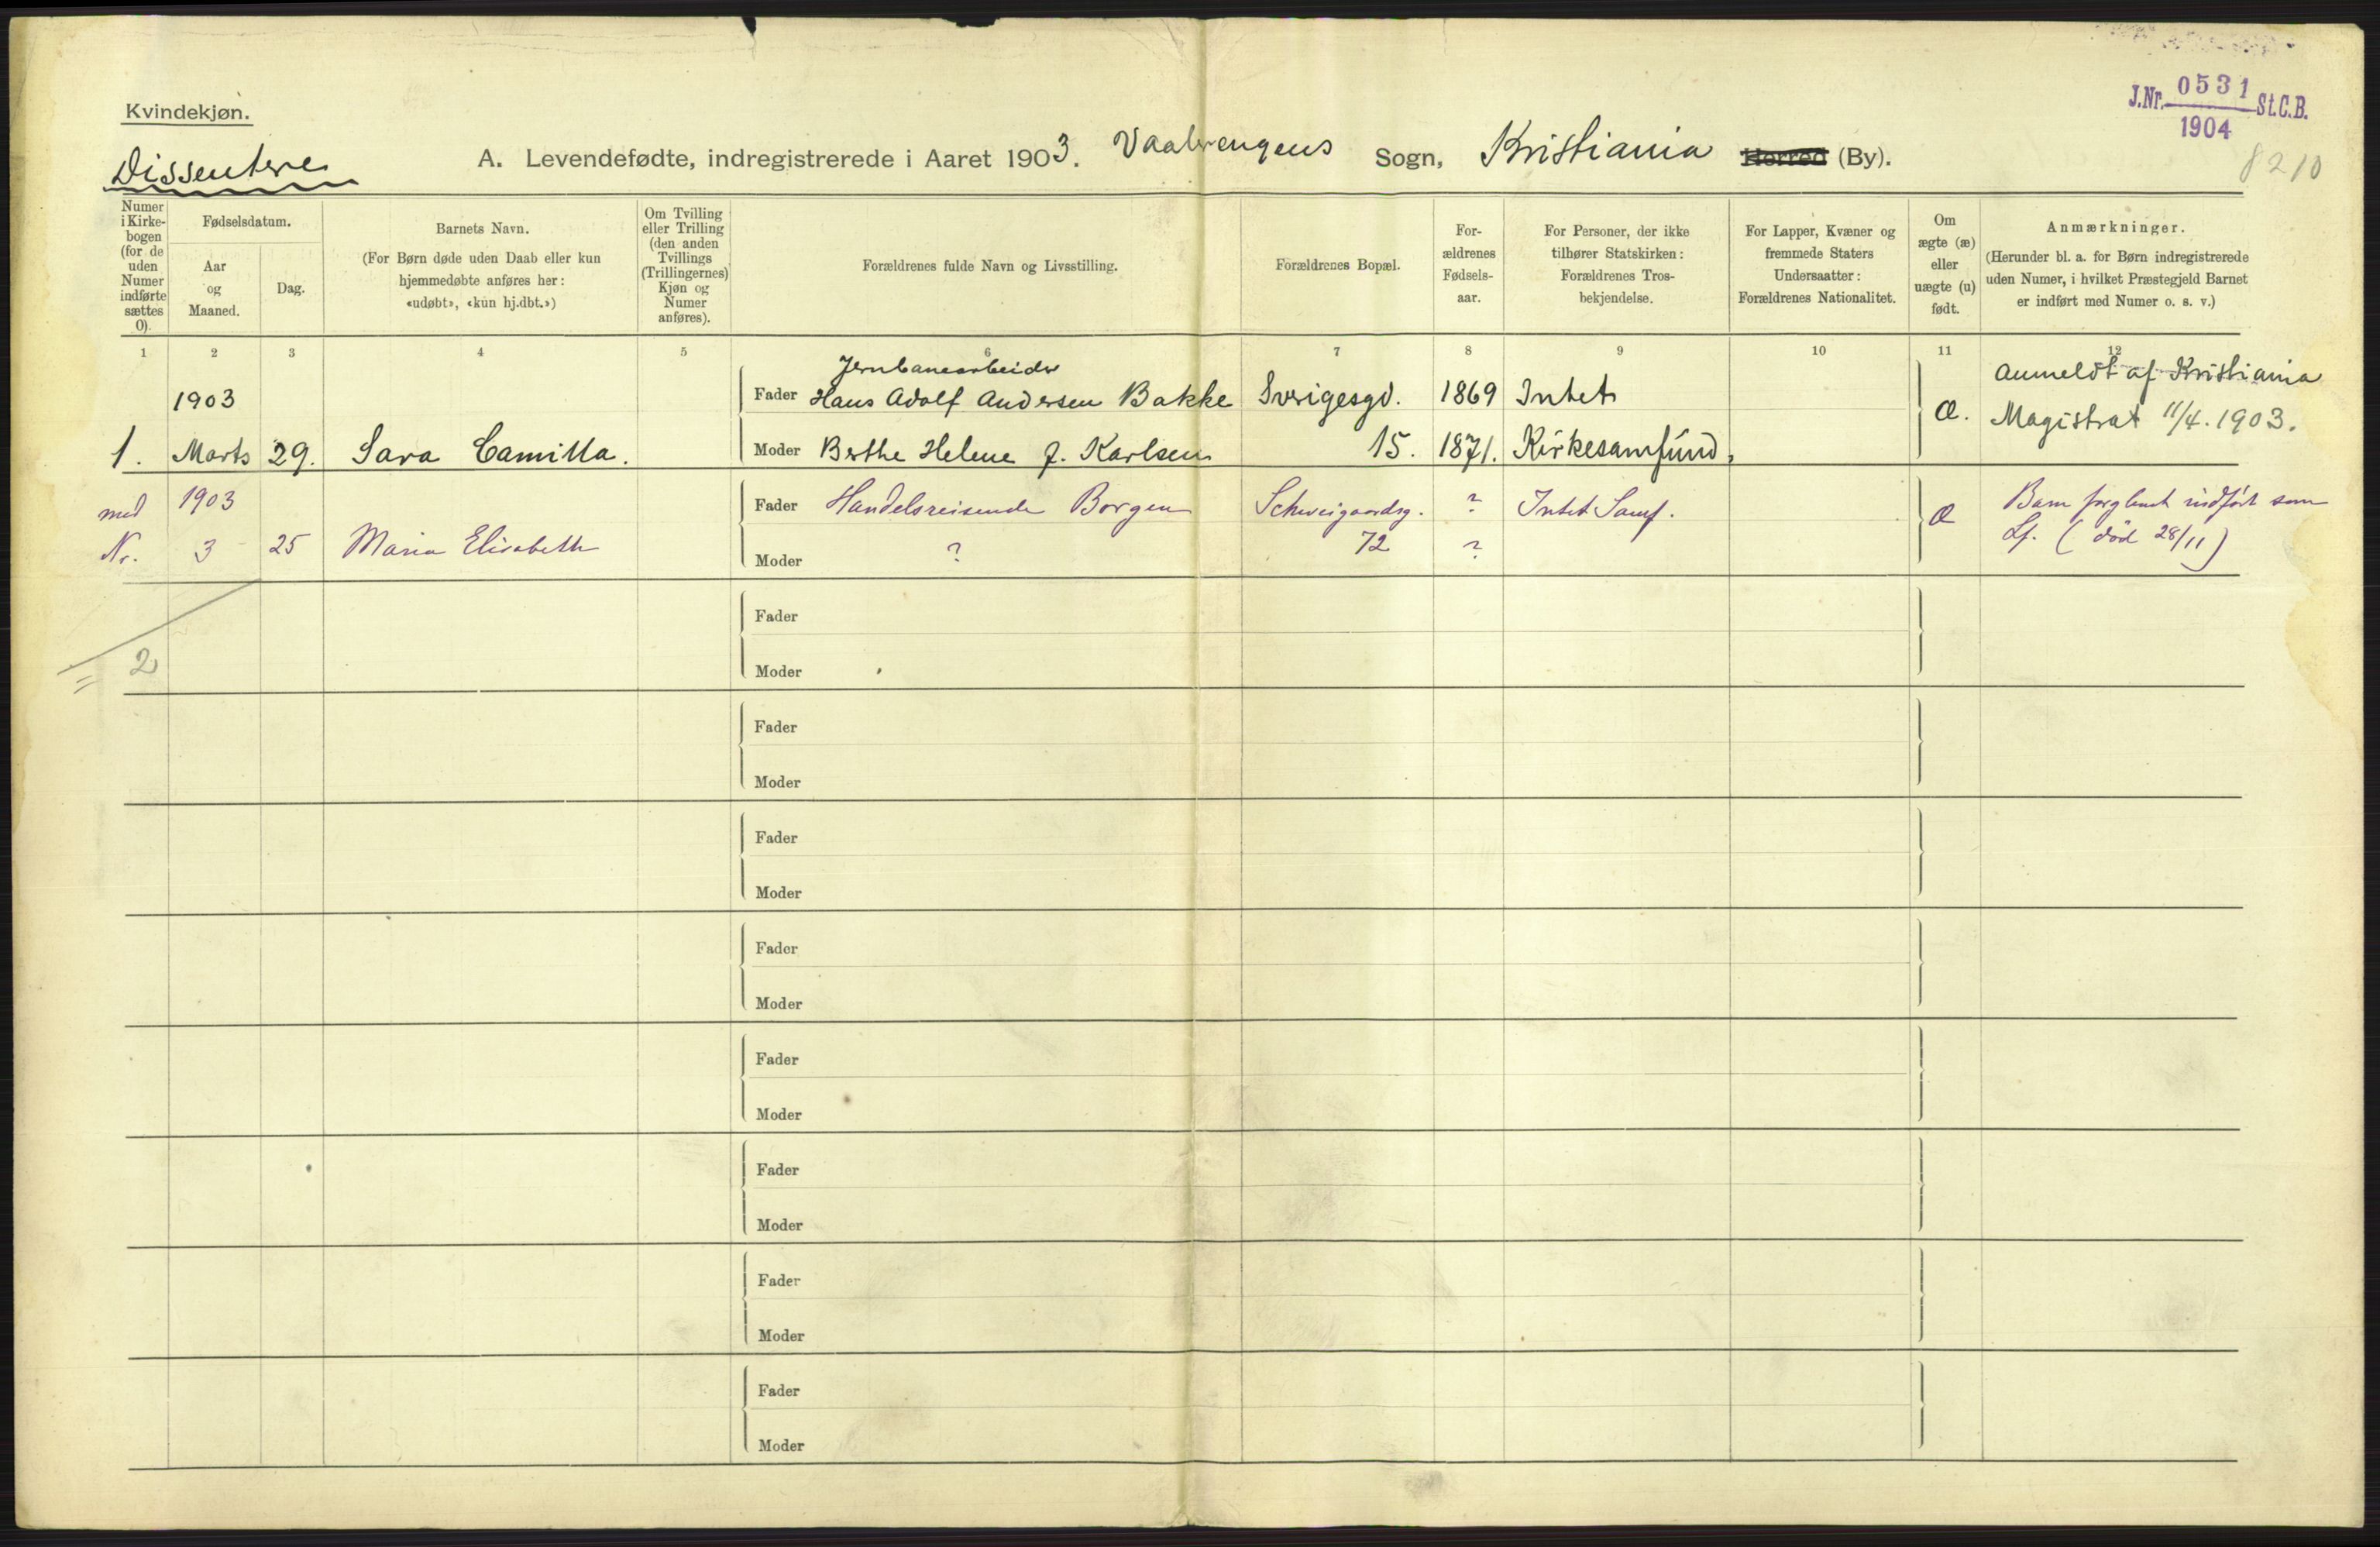 Kvindekjøn.
J.Nr. 0531 St.C.B.
1904
8210
Dissentere
A. Levendefødte, indregistrerede i Aaret 1903. Vaalerengens Sogn, Kristiania Herred (By).
Numer i Kirke- bogen (for de uden Numer indførte sættes 0).
Fødselsdatum.
Aar og Maaned.
Dag.
Barnets Navn.
(For Børn døde uden Daab eller kun
hjemmedøbte anføres her:
«udøbt», «kun hj.dbt.»)
Om Tvilling
eller Trilling
(den anden
Tvillings
(Trillingernes)
Kjøn og
Numer
anføres).
Forældrenes fulde Navn og Livsstilling.
Forældrenes Bopæl.
For-
ældrenes
Fødsels-
aar.
For Personer, der ikke
tilhører Statskirken:
Forældrenes Tros-
bekjendelse.
For Lapper, Kvæner og
fremmede Staters
Undersaatter:
Forældrenes Nationalitet.
Om
ægte (æ)
eller
uægte (u)
født.
Anmærkninger.
(Herunder bl. a. for Børn indregistrerede
uden Numer, i hvilket Præstegjeld Barnet
er indført med Numer o. s. v.)
1 2 3 4 5 6 7 8 9 10 11 12
Jernbanearbeider
1903 Fader Hans Adolf Andersen Bakke Sverigesgd. 1869 Intet æ. Anmeldt af Kristiania
1. Marts 29. Sara Camilla. Moder Berthe Helene f. Karlsen 15. 1871. Kirkesamfund. Magistrat 11/4. 1903.
med 1903 Fader Handelsreisende Borgen Schweigaardsg. ? Intet Samf. æ Barn forglemt indført som
Nr. 3 25 Maria Elisabeth Moder ? 72 ? Lf. (død 28/11)
Fader
= 2 Moder
Fader
Moder
Fader
Moder
Fader
Moder
Fader
Moder
Fader
Moder
Fader
Moder
Fader
Moder